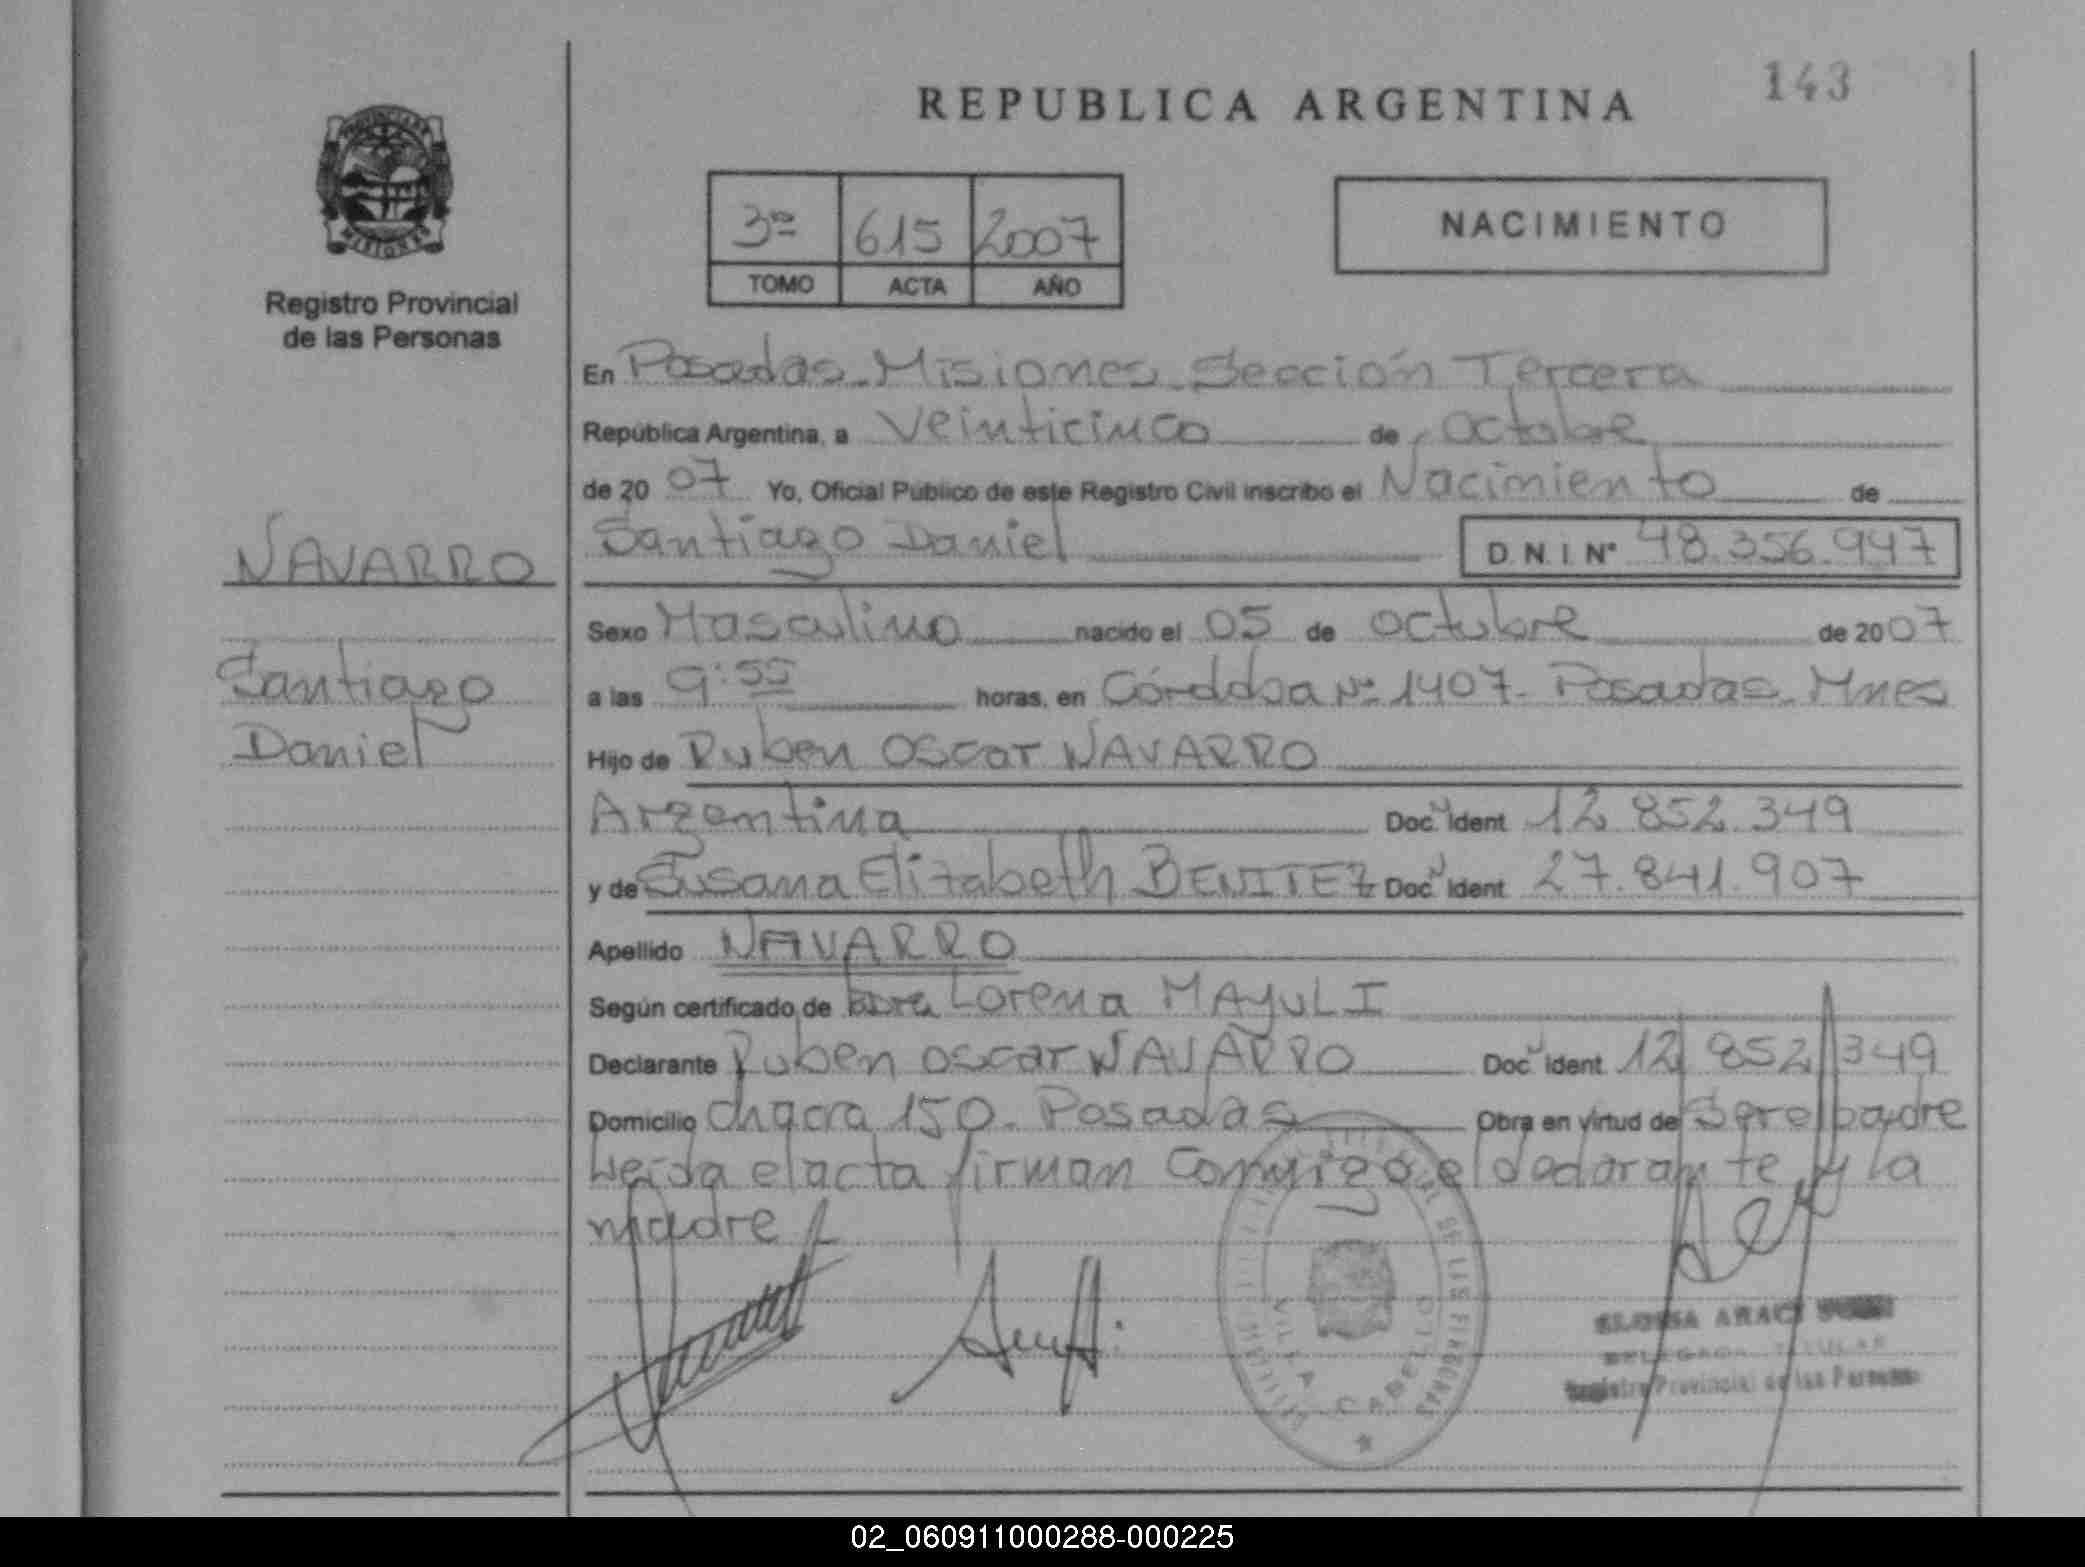 143
REPUBLICA ARGENTINA
PROVINCIA DE
MISIONES
3º 615 2007
TOMO ACTA AÑO
NACIMIENTO
Registro Provincial
de las Personas
En Posadas Misiones Sección Tercera
República Argentina, a Veinticinco de Octubre
de 2007 Yo, Oficial Público de este Registro Civil inscribo el Nacimiento de
NAVARRO
Santiago Daniel D.N.I Nº 48.356.947
Sexo Masculino nacido el 05 de octubre de 2007
Santiago
Daniel
a las 9:55 horas, en Córdoba Nº 1407 - Posadas - Mnes
Hijo de Ruben Oscar NAVARRO
Argentina Doc. Ident 12 852 349
y de Susana Elizabeth BENITEZ Doc. Ident 27.841.907
Apellido NAVARRO
Según certificado de Lorena MAYULI
Declarante Ruben Oscar NAVARRO Doc. Ident 12 852 349
Domicilio chacra 150 - Posadas Obra en virtud de Ser el padre
Leída el acta firman conmigo el declarante y la
madre
VILLA CABELLO
DELEGADA TITULAR
Registro Provincial de las Personas
02_060911000288-000225